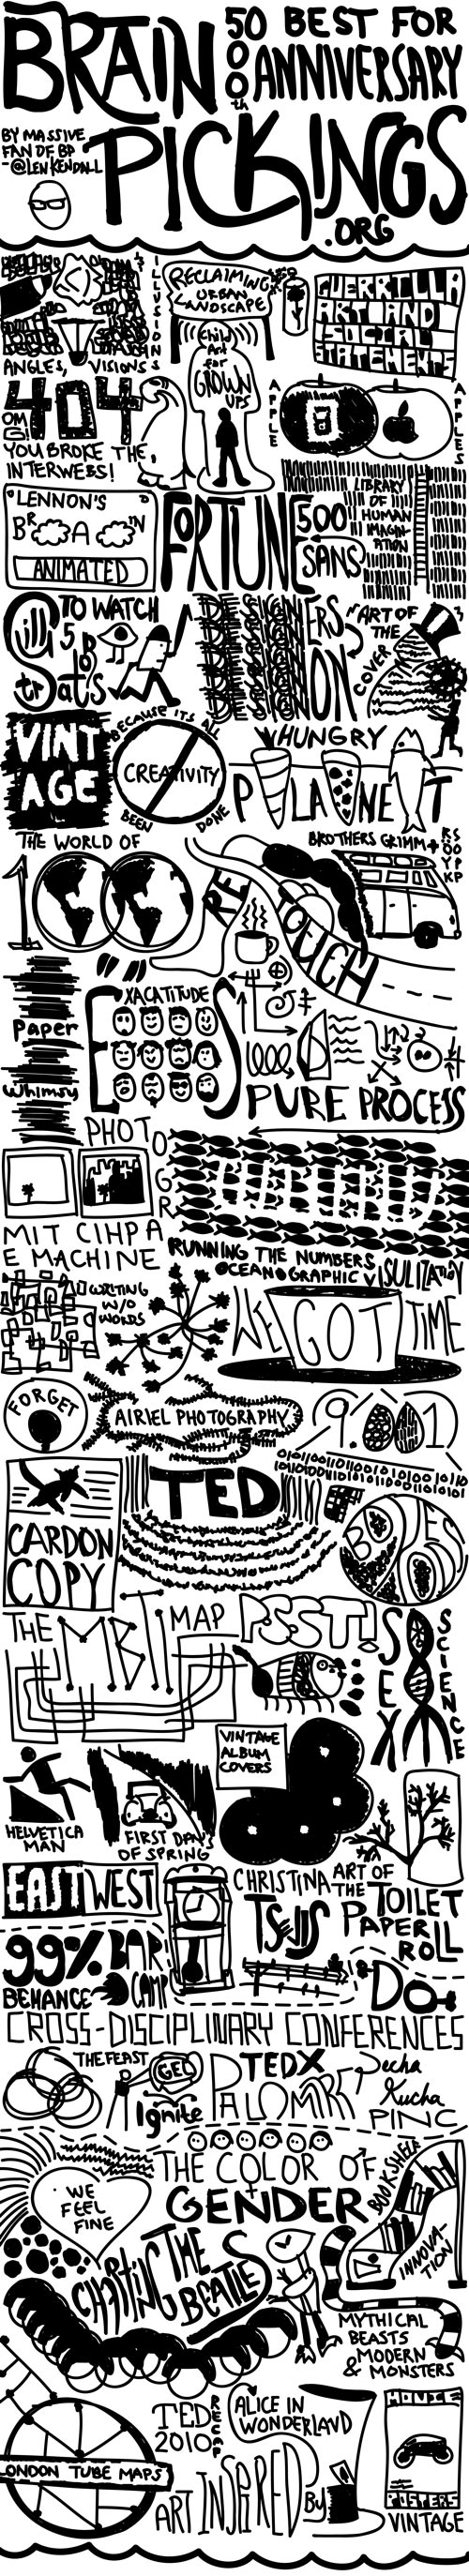 BRAIN
PICKINGS
.ORG
50 BEST FOR
500th ANNIVERSARY
BY MASSIVE
FAN OF BP
-@LENKENDALL
ANGLES, VISIONS &
ILLUSIONS
RECLAIMING
URBAN
LANDSCAPE
GUERRILLA
ART AND
SOCIAL
STATEMENTS
Child
Art
for
GROWN
UPS
404
OMG!
YOU BROKE THE
INTERWEBS!
APPLE
APPLES
LENNON'S
BRAIN
ANIMATED
FORTUNE
500
SANS
LIBRARY
OF
HUMAN
IMAGIN-
ATION
TO WATCH
5
DESIGNERS
DESIGN
DESIGN
DESIGN
DESIGN
ON
"ART OF
THE
COVER"
VINT
AGE
BECAUSE ITS ALL
CREATIVITY
BEEN DONE
HUNGRY
PLANET
THE WORLD OF
100
RETOUCH
BROTHERS GRIMM +
Paper
Whimsy
EXACATITUDES
PURE PROCESS
PHOTOGR
MIT CIHPA
E MACHINE
RUNNING THE NUMBERS
OCEANOGRAPHIC VISULIZATION
WRITING
W/O
WORDS
WE GOT TIME
FORGET
AIRIEL PHOTOGRAPHY
CARDON
COPY
TED
BODIES
THE MBTI MAP
PSST!
SEX
SCIENCE
HELVETICA
MAN
FIRST DAYS
OF SPRING
VINTAGE
ALBUM
COVERS
EAST WEST
CHRISTINA
TSEVIS
ART OF
THE TOILET
PAPER
ROLL
99%
BEHANCE
BAR
CAMP
DO
CROSS-DISCIPLINARY CONFERENCES
THE FEAST
GEL
Ignite
TEDX
PALOMAR
Pecha
Kucha
PINC
WE
FEEL
FINE
THE COLOR OF
GENDER
BOOKSHELF
INNOVA-
TION
CHARTING THE
BEATLES
MYTHICAL
BEASTS
& MODERN
MONSTERS
LONDON TUBE MAPS
TED
2010
RECAP
ALICE IN
WONDERLAND
ART INSPIRED
By
MOVIE
POSTERS
VINTAGE